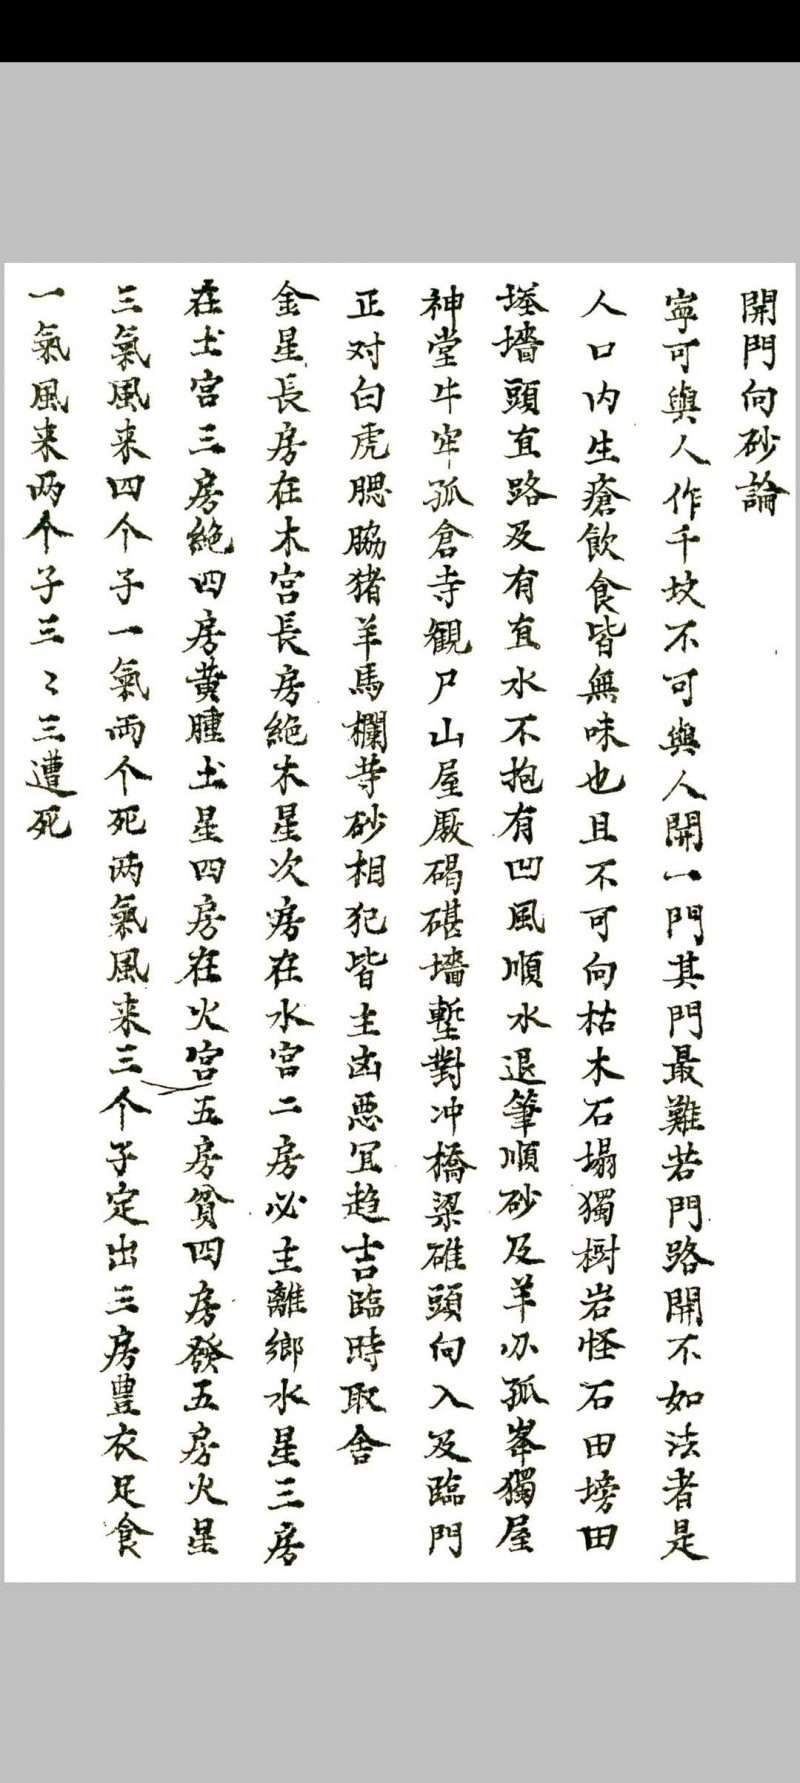 開門向砂論
寧可與人作千坟不可與人開一門其門最難若門路開不如法者是
人口內生瘡飲食皆無味也且不可向枯木石塌獨樹岩怪石田塝田
墶墻頭直路及有直水不抱有凹風順水退筆順砂及羊刅孤峯獨屋
神堂牛牢孤倉寺觀尸山屋厫碣磡墻塹對冲橋梁碓頭向入及臨門
正对白虎腮脇猪羊馬欄等砂相犯皆主凶悪宜趋吉臨時取舍
金星長房在木宮長房絕木星次房在水宮二房必主離鄉水星三房
在土宮三房絕四房黃腫土星四房在火宮五房貧四房發五房火星
三氣風来四个子一氣両个死两氣風来三个子定出三房豊衣足食
一氣風来两个子三〻三遭死